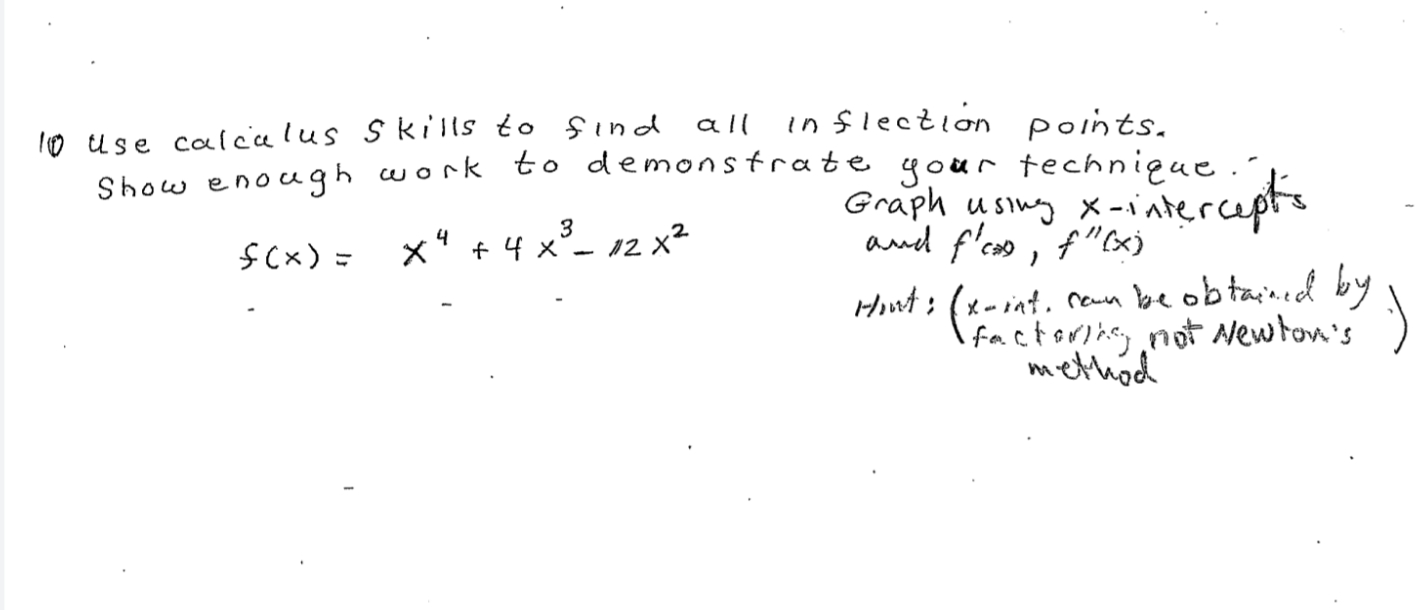 10 Use calculus skills to find all inflection points.
Show enough work to demonstrate your technique.
Graph using x-intercepts
and f'(x), f"(x)
f(x) = x⁴ + 4x³ - 12x²
Hint: (x-int. can be obtained by
factoring, not Newton's
method)